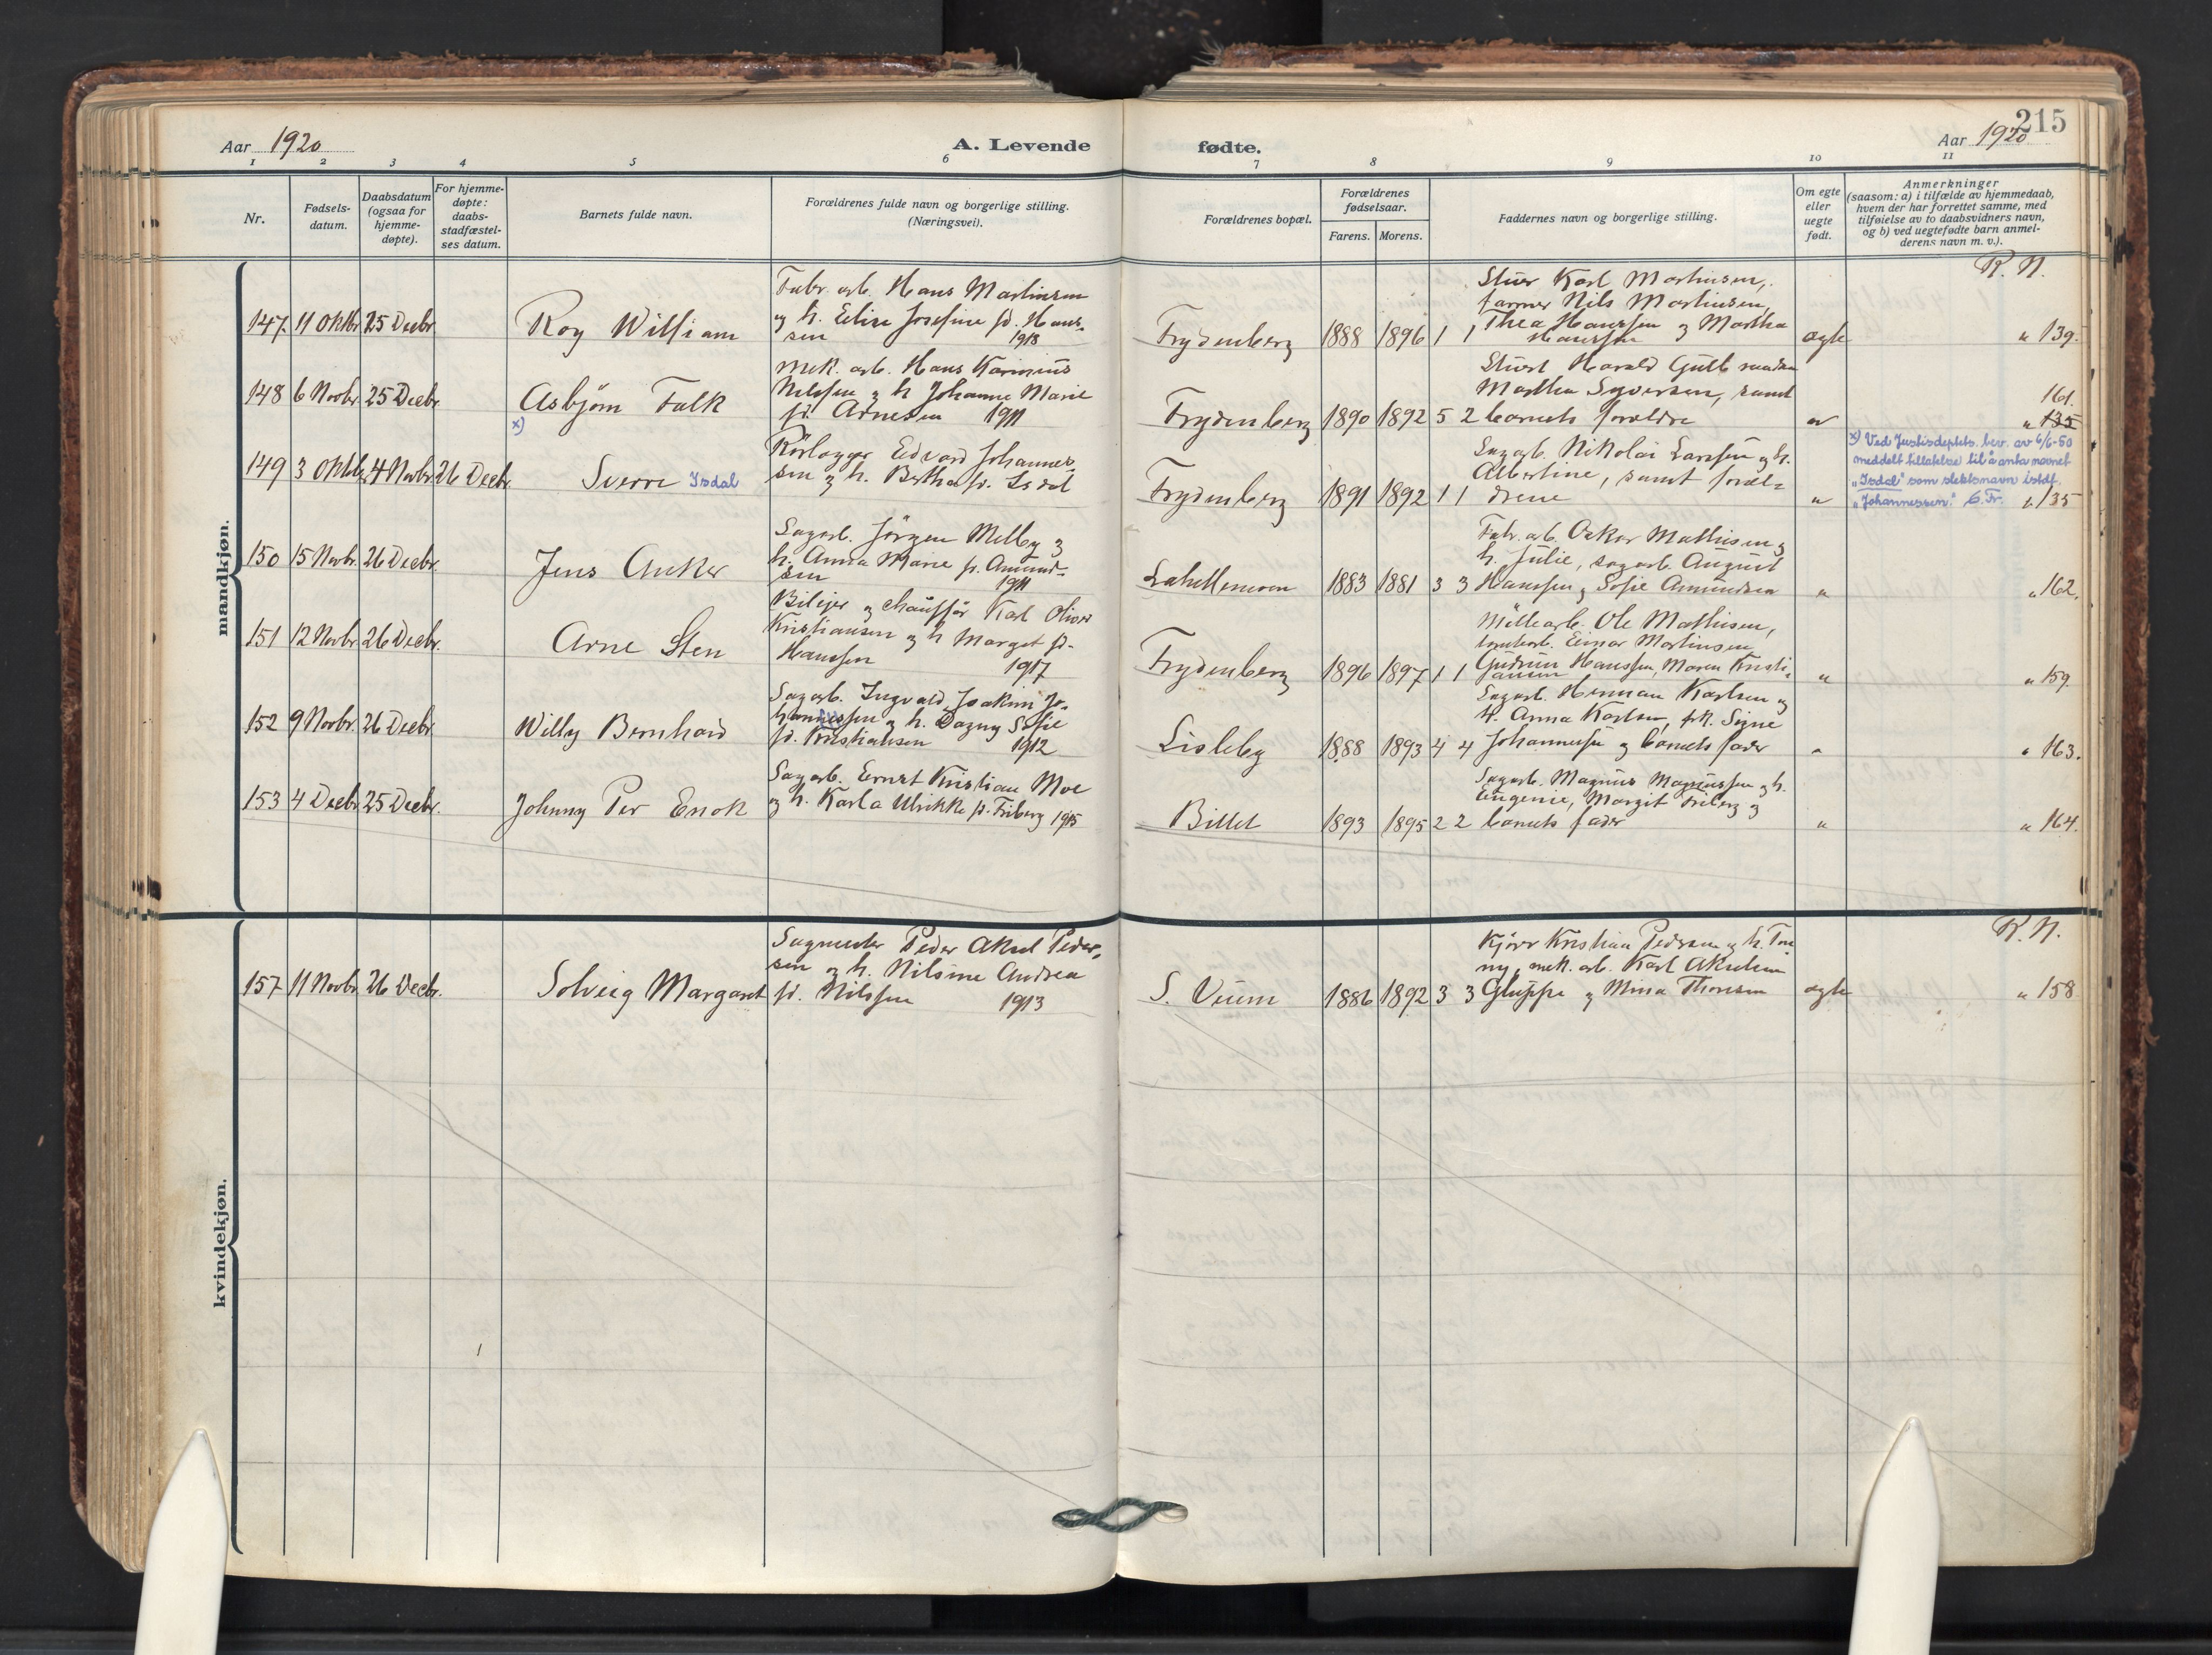 Aar 1920
A. Levende
fødte.
215
Aar 1920
1 2 3 4 5 6 7 8 9 10 11
Nr.
Fødsels-
datum.
Daabsdatum
(ogsaa for
hjemme-
døpte).
For hjemme-
døpte:
daabs-
stadfæstel-
ses datum.
Barnets fulde navn.
Forældrenes fulde navn og borgerlige stilling.
(Næringsvei).
Forældrenes bopæl.
Forældrenes
fødselsaar.
Farens. Morens.
Faddernes navn og borgerlige stilling.
Om egte
eller
uegte
født.
Anmerkninger
(saasom: a) i tilfælde av hjemmedaab,
hvem der har forrettet samme, med
tilføielse av to daabsvidners navn,
og b) ved uegtefødte barn anmel-
derens navn m. v.).
mandkjøn.
R. N.
147. 11 Oktbr 25 Decbr
Roy William
Fabr. arb. Hans Martinsen
og h. Eline Josefine f. Hans-
sen 1918
Frydenberg 1888 1896 1 1
Stuer Karl Martinsen,
farmer Nils Martinsen,
Thea Hanssen og Martha
Hanssen
egte
" 139.
148 6 Novbr. 25 Decbr.
Asbjørn Falk
x)
Mek. arb. Hans Karinius
Nilssen og h. Johanne Marie
fd. Arnesen 1911
Frydenberg 1890 1892 5 2
Martha Syversen, samt
barnets forældre
"
161.
" 135
149 3 Oktbr. 4 Novbr. 26 Decbr.
Sverre Isdal
Rörlægger Edvard Johannes-
sen og h. Bertha fd. Isdal
Frydenberg 1891 1892 1 1
Sagarb. Nikolai Larssen og h.
Albertine, samt foræl-
drene
"
x) Ved Justisdeptets. bev. av 6/6-50
meddelt tillatelse til å anta navnet
"Isdal" som slektsnavn istdf.
"Johannessen". G. Fr. " 135
150 15 Novbr. 26 Decbr.
Jens Anker
Sagarb. Jörgen Melby og
h. Anna Marie f. Amund-
sen 1911
1883 1881 3 3
Fabr. arb. Oskar Mathisen og
h. Julie, sagarb. August
Hanssen, Sofie Amundsen
"
" 162.
151 12 Novbr. 26 Decbr.
Arne Sten
Bileier og chauffør Karl Oliver
Kristiansen og h. Margit fd.
Hanssen 1917
Frydenberg 1896 1897 1 1
Möllearb. Ole Mathisen,
Einar Martinsen
Gudrun Hanssen, Maren Kristi-
ansen
"
" 159.
152 9 Novbr. 26 Decbr
Willy Bernhard
Sagarb. Ingvald Joakim Jo-
hannessen og h. Dagny Sofie
fd. Kristiansen 1912
Lisleby 1888 1893 4 4
Sagarb. Herman Karlsen og
h. Anna Karlsen, frk. Signe
Johannessen og barnets fader
"
" 163.
153 4 Decbr. 25 Decbr.
Johnny Per Enok
Sagarb. Ernst Kristian Moe
og h. Karla Ulrikke fd. Friberg 1915
Billet 1893 1895 2 2
Sagarb. Magnus Magnussen og h.
Eugenie, Margit Friberg og
barnets fader
"
" 164.
kvindekjøn.
R. N.
157 11 Novbr. 26 Decbr.
Solveig Margaret
Sagmester Peder Aksel Peder-
sen og h. Nilsine Andrea
fd. Nilssen 1913
S. Veum 1886 1892 3 3
Kjörer Kristian Pedersen og h. Fan-
ny, mek. arb. Karl Akselsen
Gluppe og Mina Thoresen
egte
" 158